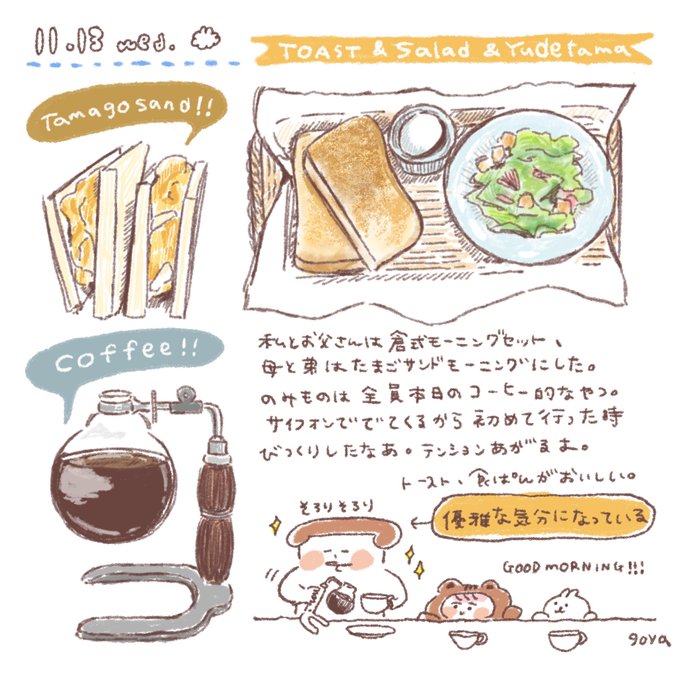 11.13 wed.
TOAST & Salad & Yudetama
Tamagosand!!
coffee!!
私とお父さんは倉式モーニングセット、
母と弟はたまごサンドモーニングにした。
のみものは全員本日のコーヒー的なやつ。
サイフォンででてくるから初めて行った時
びっくりしたなあ。テンションあがるよお。
トースト、食ぱんがおいしい。
そろりそろり
優雅な気分になっている
GOOD MORNING!!!
goya